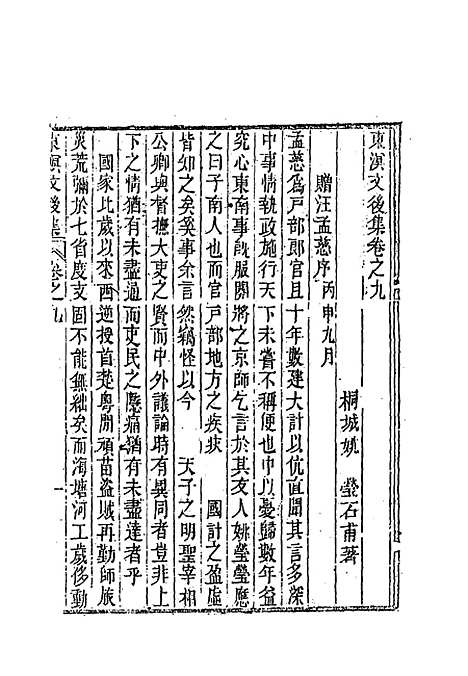 東溟文後集卷之九
桐城姚 瑩石甫著
贈汪孟慈序丙申九月
孟慈爲戸部郎官且十年數建大計以伉直聞其言多深
中事情執政施行天下未嘗不稱便也中以憂歸數年益
究心東南事旣服闋將之京師乞言於其友人姚瑩瑩應
之曰子南人也而官戸部地方之疾疚 國計之盈虛
皆知之矣奚事余言然竊怪以今 天子之明聖宰相
公卿與督撫大吏之賢而中外議論時有異同者豈非上
下之情猶有未盡通而吏民之隱痛猶有未盡達者乎
國家比歲以來西逆授首楚粵閒頑苗盜賊再勤師旅
災荒彌於七省度支固不能無絀矣而海塘河工歲修動
東溟文後集 卷之九 一